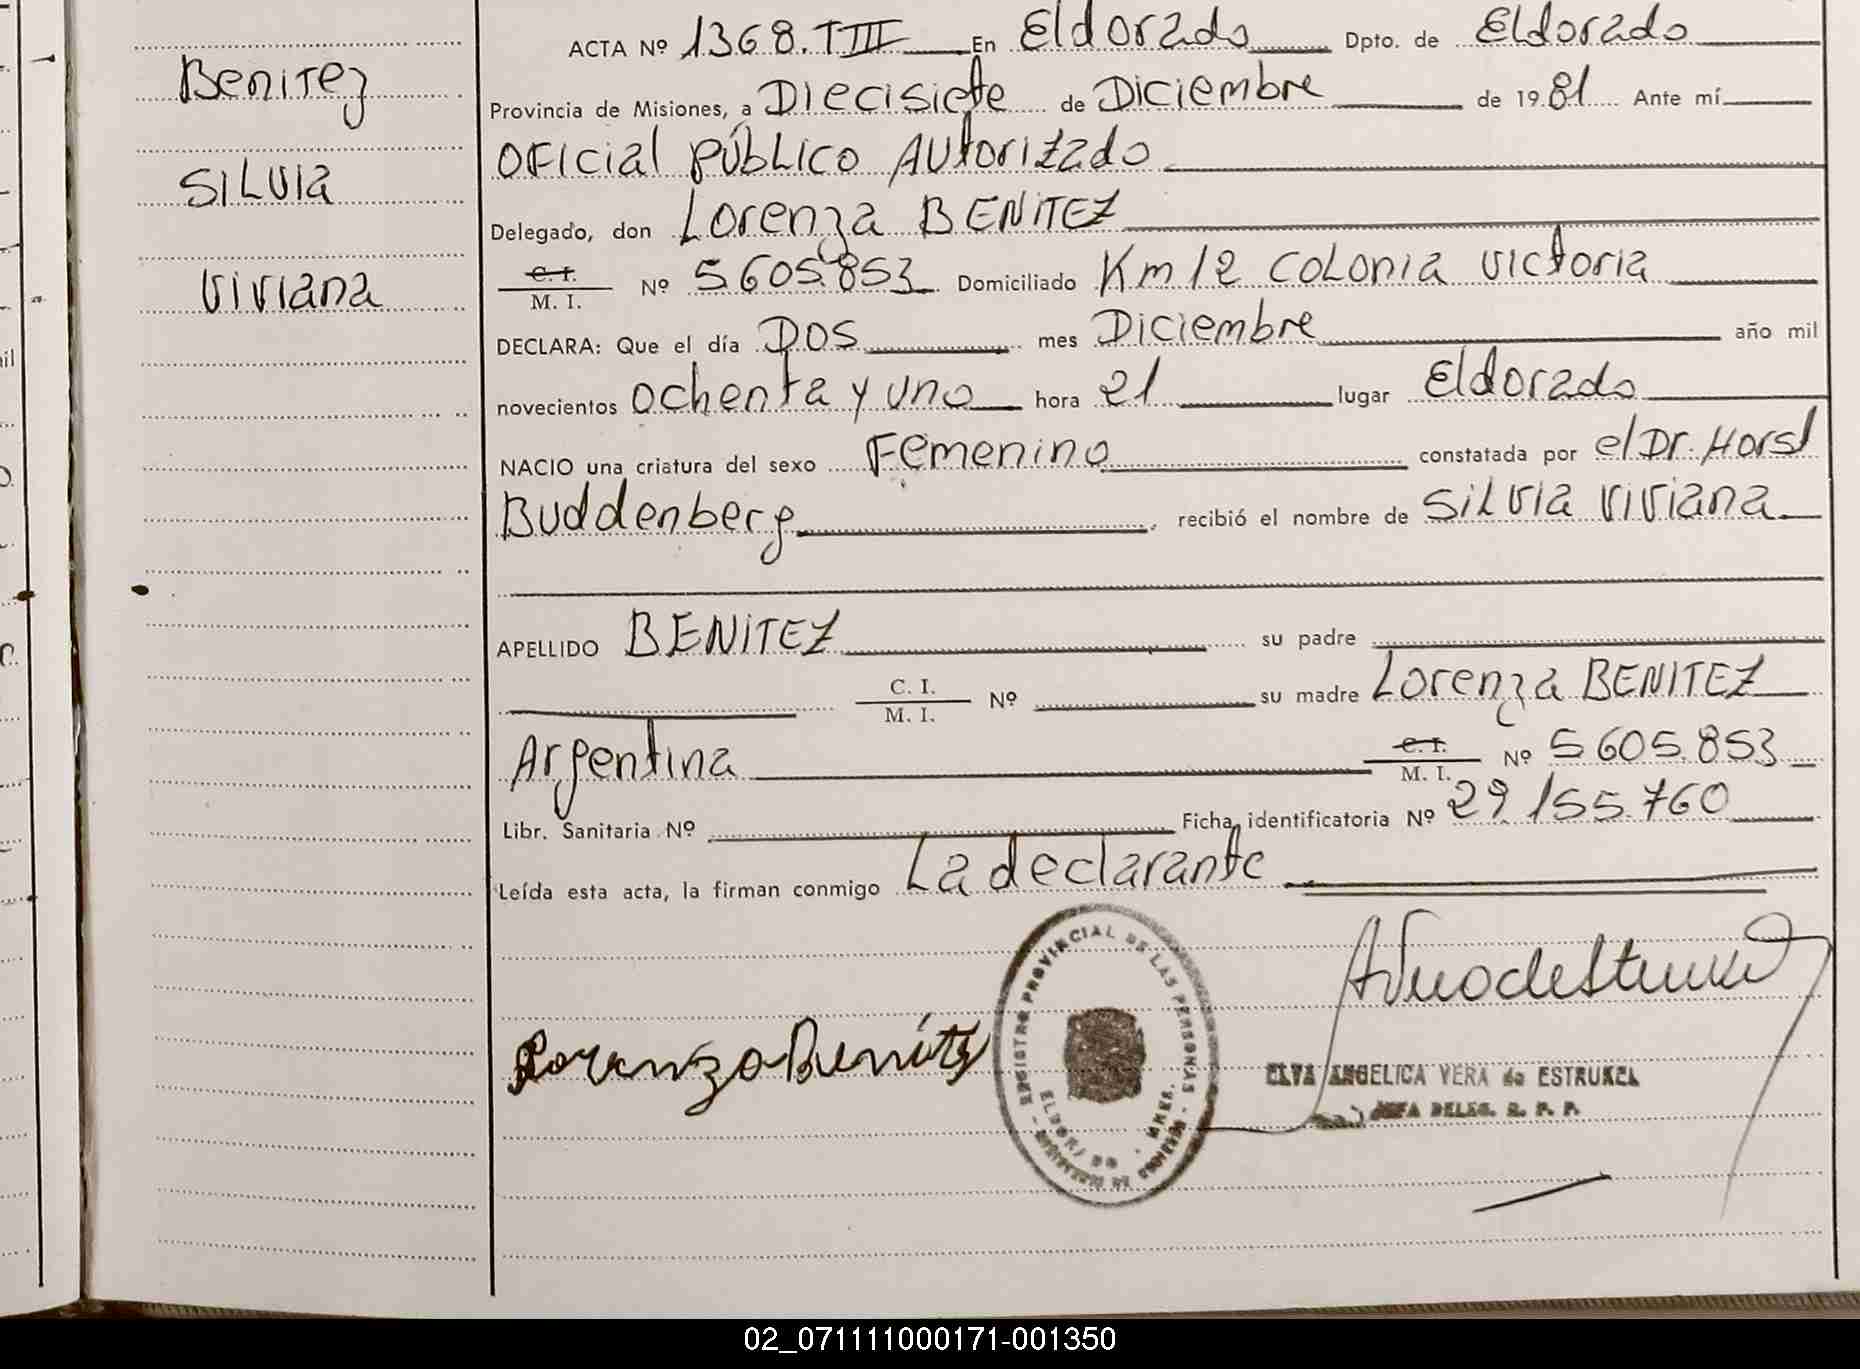 Benitez
Silvia
Viviana
ACTA Nº 1368.TIII En Eldorado Dpto. de Eldorado
Provincia de Misiones, a Diecisiete de Diciembre de 1981 Ante mí
Oficial Público Autorizado
Delegado, don Lorenza BENITEZ
C. I.
M. I. Nº 5.605.853 Domiciliado Km 12 Colonia Victoria
DECLARA: Que el día DOS mes Diciembre año mil
novecientos ochenta y uno hora 21 lugar Eldorado
NACIO una criatura del sexo Femenino constatada por el Dr. Horst
Buddenberg, recibió el nombre de Silvia Viviana
APELLIDO BENITEZ su padre
C. I.
M. I. Nº su madre Lorenza BENITEZ
Argentina C. I.
M. I. Nº 5.605.853
Libr. Sanitaria Nº Ficha identificatoria Nº 29.155.760
Leída esta acta, la firman conmigo La declarante
Lorenza Benítez
REGISTRO PROVINCIAL DE LAS PERSONAS
ELDORADO - MNES.
ELVA ANGELICA VERA de ESTRUKEL
JEFA DELEG. R. P. P.
02_071111000171-001350